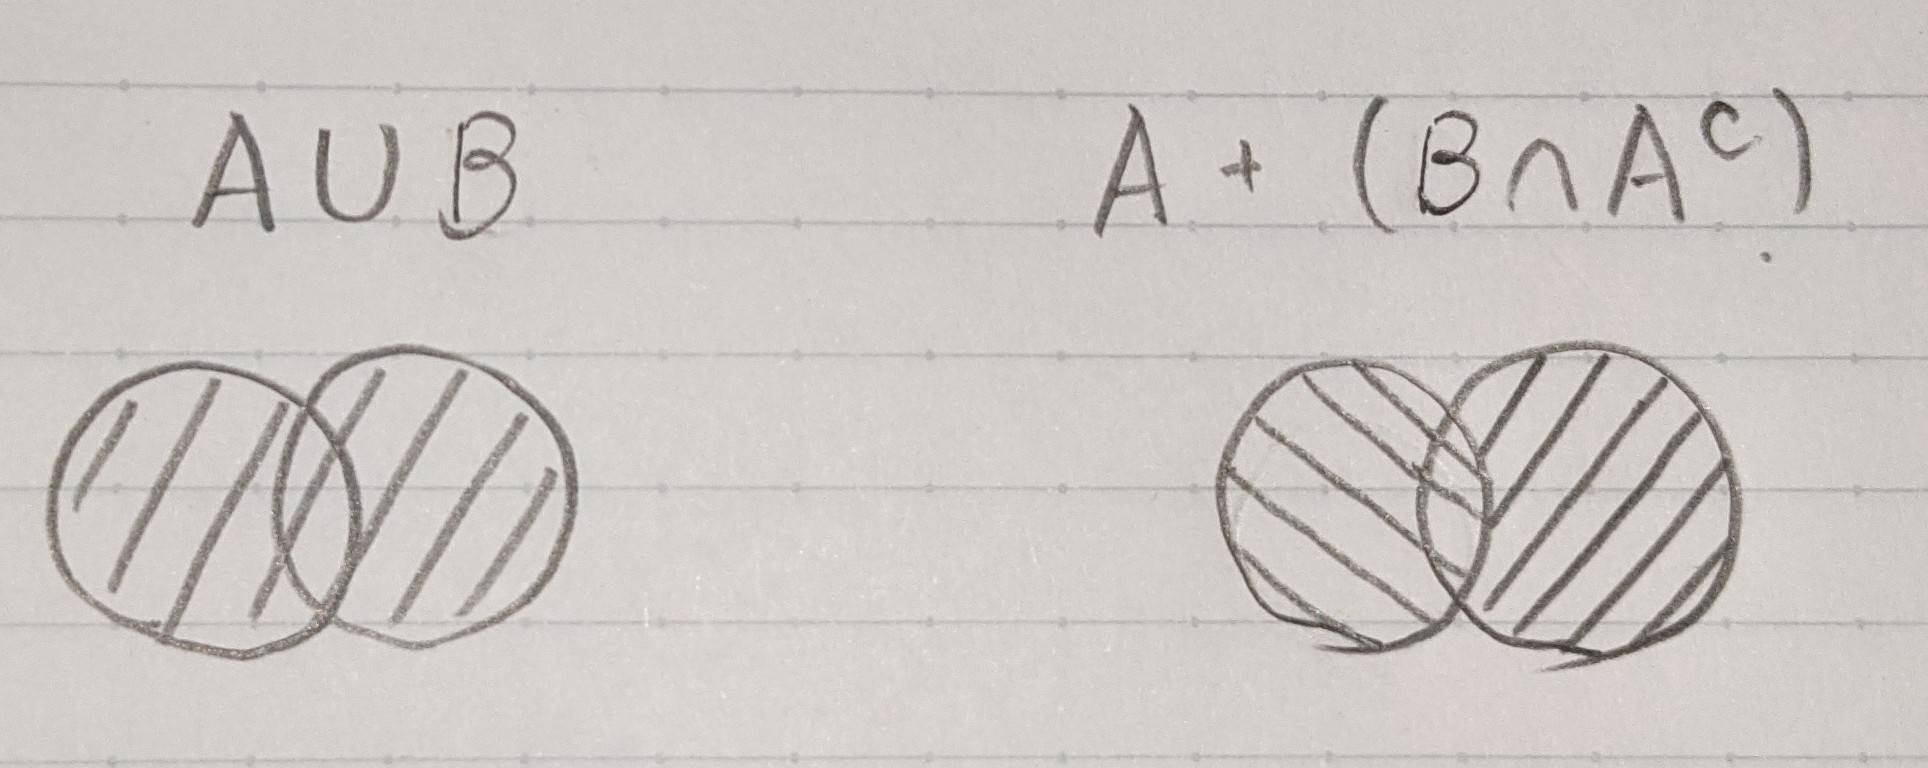 A ∪ B
A + (B ∩ Aᶜ)